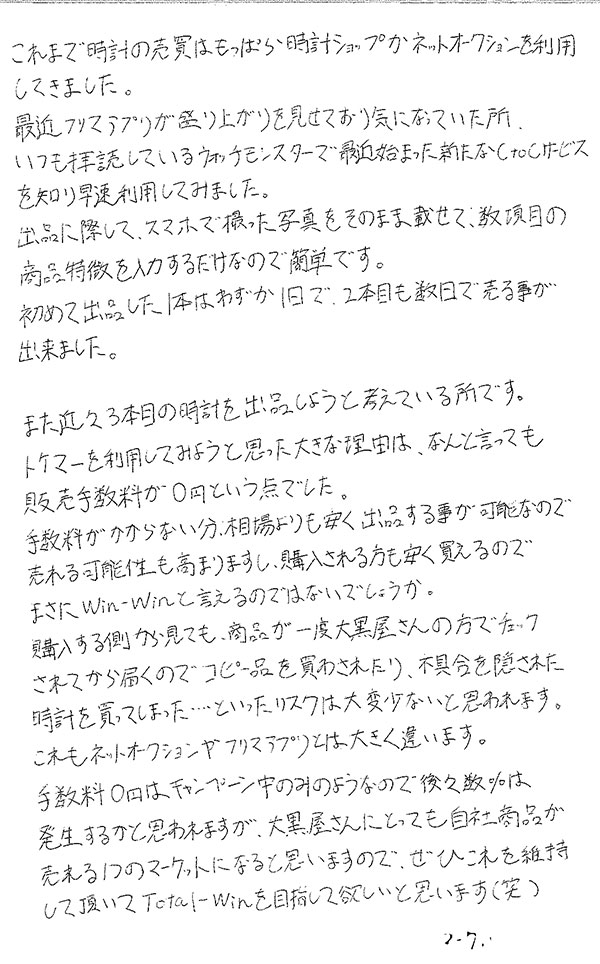 これまで時計の売買はもっぱら時計ショップかネットオークションを利用
してきました。
最近フリマアプリが盛り上がりを見せており気になっていた所、
いつも拝読しているウォッチモンスターで最近始まった新たなCtoCサービス
を知り早速利用してみました。
出品に際して、スマホで撮った写真をそのまま載せて、数項目の
商品特徴を入力するだけなので簡単です。
初めて出品した1本はわずか1日で、2本目も数日で売る事が
出来ました。
また近々3本目の時計を出品しようと考えている所です。
トケマーを利用してみようと思った大きな理由は、なんと言っても
販売手数料が0円という点でした。
手数料がかからない分、相場よりも安く出品する事が可能なので
売れる可能性も高まりますし、購入される方も安く買えるので
まさにWin-Winと言えるのではないでしょうか。
購入する側から見ても、商品が一度大黒屋さんの方でチェック
されてから届くのでコピー品を買わされたり、不具合を隠された
時計を買ってしまった…といったリスクは大変少ないと思われます。
これもネットオークションやフリマアプリとは大きく違います。
手数料0円はキャンペーン中のみのようなので後々数%は
発生するかと思われますが、大黒屋さんにとっても自社商品が
売れる1つのマーケットになると思いますので、ぜひこれを維持
して頂いてTotal-Winを目指して欲しいと思います(笑)